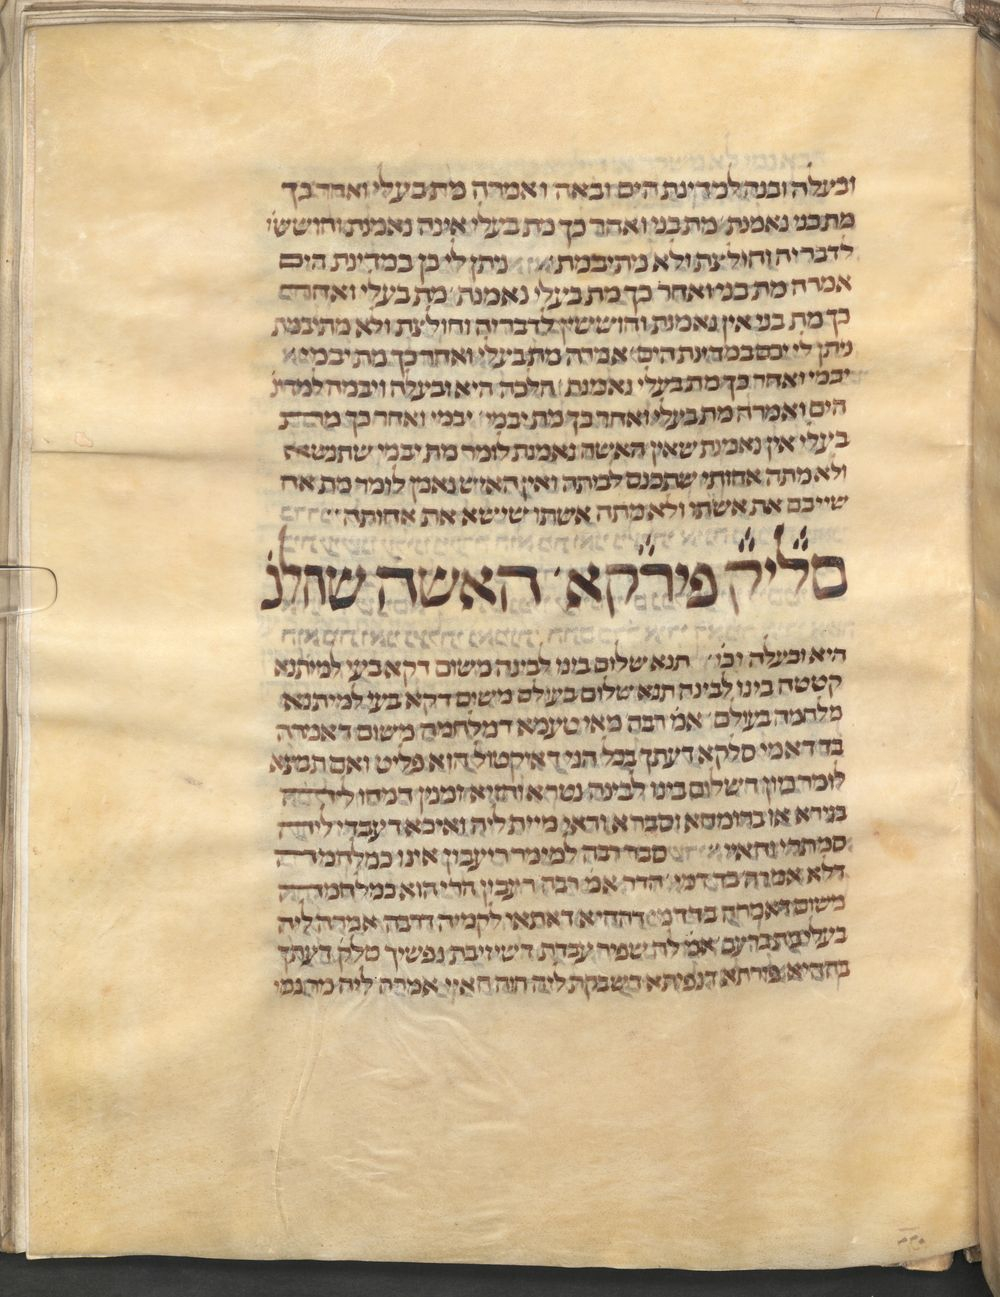 ובעלה ובנה למדינת הים ובאה ואמרה מת בעלי ואחר כך
מת בני נאמנת׳ מת בני ואחר כך מת בעלי אינה נאמנת וחוששי׳
לדבריה וחולצת ולא מתיבמת׳ ניתן לי בן במדינת הים
אמרה מת בני ואחר כך מת בעלי נאמנת׳ מת בעלי ואחר
כך מת בני אין נאמנת וחוששין לדבריה וחולצת ולא מתיבמת
ניתן לי יבם במדינת הים׳ אמרה מת בעלי ואחר כך מת יבמי
יבמי ואחר כך מת בעלי נאמנת׳ הלכה היא ובעלה ויבמה למדינ׳
הים ואמרה מת בעלי ואחר כך מת יבמי׳ יבמי ואחר כך מת
בעלי אין נאמנת שאין האשה נאמנת לומר מת יבמי שתנשא
ולא מתה אחותי שתכנס לביתה ואין האיש נאמן לומר מת אח׳
שייבם את אשתו ולא מתה אשתו שישא את אחותה׳
סליק פירקא׳ האשה שהלכ׳
היא ובעלה וכו׳ תנא שלום בינו לבינה משום דקא בעי למיתנא
קטטה בינו לבינה תנא שלום בעולם משום דקא בעי למיתנא
מלחמה בעולם׳ אמ׳ רבה מאי טעמא דמלחמה משום דאמרה
בדדאמי סלקא דעתך בכל הני דאיקטול הוא פליט ואם תמצא
לומר כיון דשלום בינו לבינה נטרא וחזיא זמנין דמחו ליה
בגירא או ברומחא וסברא ודאי מיית ליה ואיכא דעבדי ליה
סמתרי וחאיי׳ סבר רבה למימר ריעבון אינו כמלחמה
דלא אמרה בדדמי׳ הדר אמ׳ רבה ריעבון הרי הוא כמלחמה
משום דאמרה בדדמי דההיא דאתאי לקמיה דרבה אמרה ליה
בעלי מת ברעב׳ אמ׳ לה שפיר עבדת דשיזיבת נפשיך סלקא דעתך
בההיא פורתא דנפיתא דשבקת ליה הוה חאיי׳ אמרה ליה מר נמי